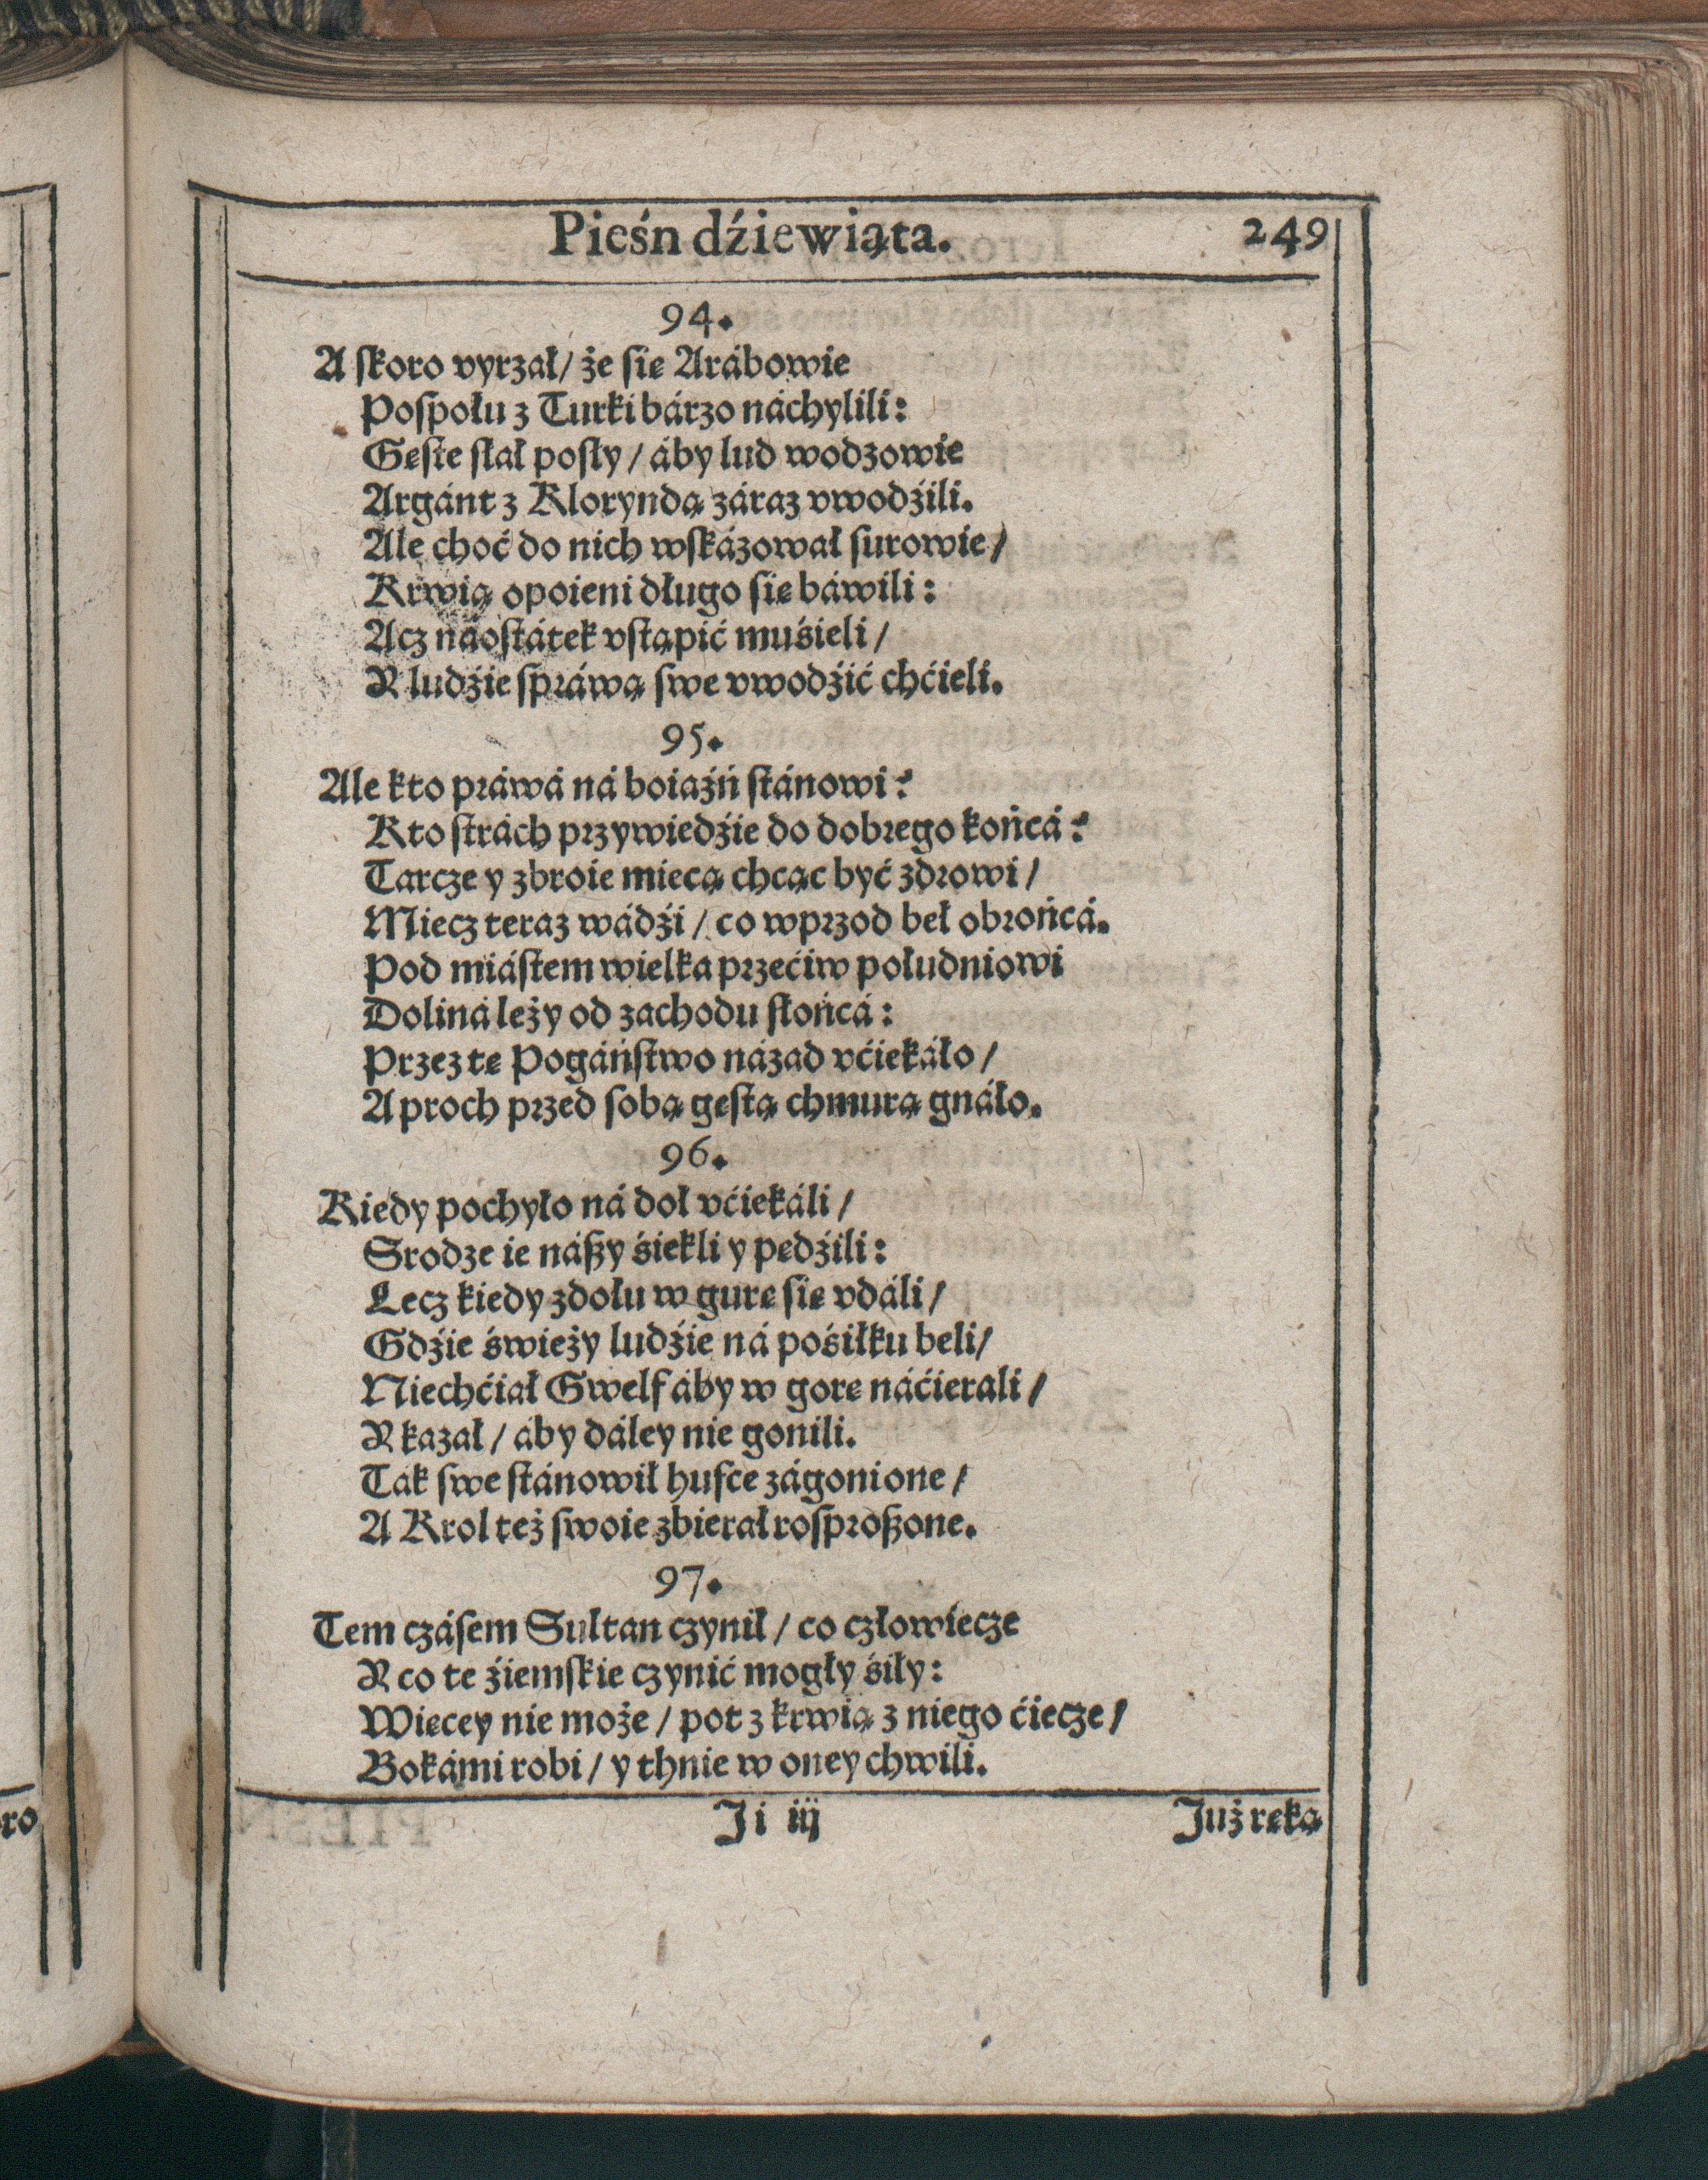 Pieśń dźiewiąta. 249
94.
A ſkoro vyrzał/ że ſię Arábowie
Poſpołu z Turki bárzo náchylili:
Gęſte ſłał poſły/ áby lud wodzowie
Argánt z Kloryndą záraz vwodźili.
Ale choć do nich wſkázował ſurowie/
Krwią opoieni długo ſię báwili:
Acz náoſtátek vſtąpić muśieli/
Y ludźie ſpráwą ſwe vwodźić chćieli.
95.
Ale kto práwá ná boiaźń ſtánowi?
Kto ſtrách przywiedźie do dobrego końcá?
Tarcze y zbroie miecą chcąc być zdrowi/
Miecz teraz wádźi/ co wprzod beł obrońcá.
Pod miáſtem wielka przećiw południowi
Doliná leży od zachodu ſłońcá:
Przez tę Pogáńſtwo názad vćiekáło/
A proch przed ſobą gęſtą chmurą gnáło.
96.
Kiedy pochyło ná doł vćiekáli/
Srodze ie náßy śiekli y pędźili:
Lecz kiedy zdołu w gurę ſię vdáli/
Gdźie świeży ludźie ná pośiłku beli/
Niechćiał Gwelf áby w gorę náćierali/
Y kazał/ áby dáley nie gonili.
Ták ſwe ſtánowił hufce zágonione/
A Krol też ſwoie zbierał roſproßone.
97.
Tem czáſem Sułtan czynił/ co człowiecze
Y co te źiemſkie czynić mogły śiły:
Więcey nie może/ pot z krwią z niego ćiecze/
Bokámi robi/ y thnie w oney chwili.
Ji iij Już ręką
ro